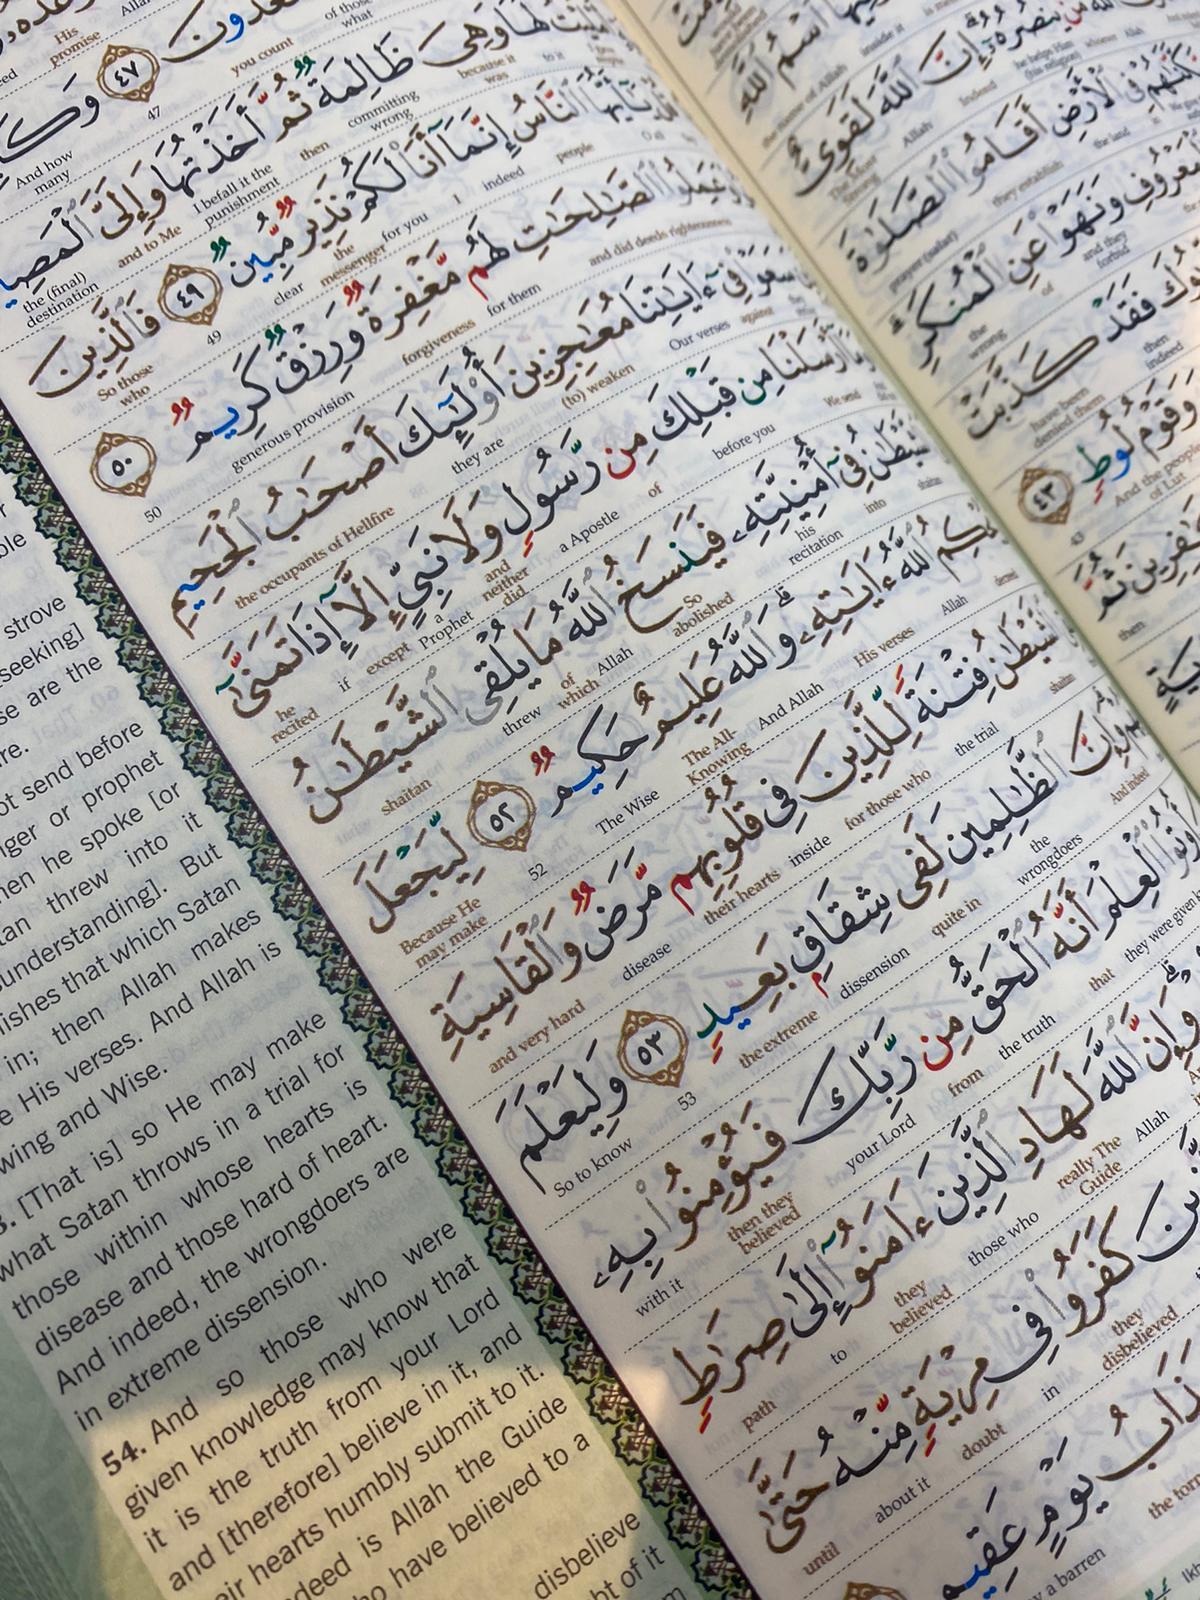 تَعُدُّونَ ٤٧ وَكَ
of those what
you count
His promise
47
And how many
لَهَا وَهِىَ ظَالِمَةٌ ثُمَّ أَخَذْتُهَا وَإِلَىَّ ٱلْمَصِي
because it was
committing wrong
then
I befall it the punishment
and to Me
the (final) destination
يَٰٓأَيُّهَا ٱلنَّاسُ إِنَّمَآ أَنَا۠ لَكُمْ نَذِيرٌ مُّبِينٌ ٤٩ فَٱلَّذِينَ
people
indeed
I
for you
the messenger
clear
49
So those who
وَعَمِلُوا۟ ٱلصَّٰلِحَٰتِ لَهُم مَّغْفِرَةٌ وَرِزْقٌ كَرِيمٌ ٥٠
and did deeds righteousness
for them
forgiveness
generous provision
50
سَعَوْا۟ فِىٓ ءَايَٰتِنَا مُعَٰجِزِينَ أُو۟لَٰٓئِكَ أَصْحَٰبُ ٱلْجَحِيمِ
against
Our verses
(to) weaken
they are
the occupants of Hellfire
أَرْسَلْنَا مِن قَبْلِكَ مِن رَّسُولٍ وَلَا نَبِىٍّ إِلَّآ إِذَا تَمَنَّىٰٓ
We send
before you
of
a Apostle
and neither did
a Prophet
except
if
he recited
فِىٓ أُمْنِيَّتِهِۦ فَيَنسَخُ ٱللَّهُ مَا يُلْقِى ٱلشَّيْطَٰنُ
shaitan
into
his recitation
So abolished
Allah
of which
threw
shaitan
ٱللَّهُ ءَايَٰتِهِۦ وَٱللَّهُ عَلِيمٌ حَكِيمٌ ٥٢ لِّيَجْعَلَ
Allah
His verses
And Allah
The All-Knowing
The Wise
52
Because He may make
فِتْنَةً لِّلَّذِينَ فِى قُلُوبِهِم مَّرَضٌ وَٱلْقَاسِيَةِ
shaitan
the trial
for those who
inside
their hearts
disease
and very hard
وَإِنَّ ٱلظَّٰلِمِينَ لَفِى شِقَاقٍۭ بَعِيدٍ ٥٣ وَلِيَعْلَمَ
And indeed
the wrongdoers
quite in
dissension
the extreme
53
So to know
أُوتُوا۟ ٱلْعِلْمَ أَنَّهُ ٱلْحَقُّ مِن رَّبِّكَ فَيُؤْمِنُوا۟ بِهِۦ
they were given
that
the truth
from
your Lord
then they believed
with it
وَإِنَّ ٱللَّهَ لَهَادِ ٱلَّذِينَ ءَامَنُوٓا۟ إِلَىٰ صِرَٰطٍ
Allah
really The Guide
those who
they believed
to
path
كَفَرُوا۟ فِى مِرْيَةٍ مِّنْهُ حَتَّىٰ
they disbelieved
in
doubt
about it
until
يَوْمٍ عَقِيمٍ
the tor
y a barren
ٱسْمُ ٱللَّهِ
inside it
the name of Allah
إِنَّ ٱللَّهَ لَقَوِىٌّ
he helps Him (his religion)
Indeed
Allah
فِى ٱلْأَرْضِ أَقَامُوا۟ ٱلصَّلَوٰةَ
the land
they establish
prayer (salat)
وَنَهَوْا۟ عَنِ ٱلْمُنكَرِ
and they forbid
of
the wrong
فَقَدْ كَذَّبَتْ
then indeed
have been denied them
وَقَوْمُ لُوطٍ ٤٣
And the people of Lut
43
ثُمَّ
then
strove
seeking]
se are the
re.
ot send before
nger or prophet
hen he spoke [or
tan threw into it
understanding]. But
ishes that which Satan
in; then Allah makes
e His verses. And Allah is
wing and Wise.
3. [That is] so He may make
what Satan throws in a trial for
those within whose hearts is
disease and those hard of heart.
And indeed, the wrongdoers are
in extreme dissension.
54. And so those who were
given knowledge may know that
it is the truth from your Lord
and [therefore] believe in it, and
eir hearts humbly submit to it.
ndeed is Allah the Guide
ho have believed to a
disbelieve
bt of it